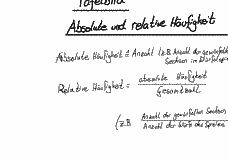 Tafelbild
Absolute und relative Häufigkeit
Absolute Häufigkeit ≙ Anzahl (z.B. Anzahl der gewürfelt
Sechsen im Würfelspie
Relative Häufigkeit = absolute Häufigkeit
Gesamtzahl
(z.B. Anzahl der gewürfelten Sechsen
Anzahl der Würfe des Spielers